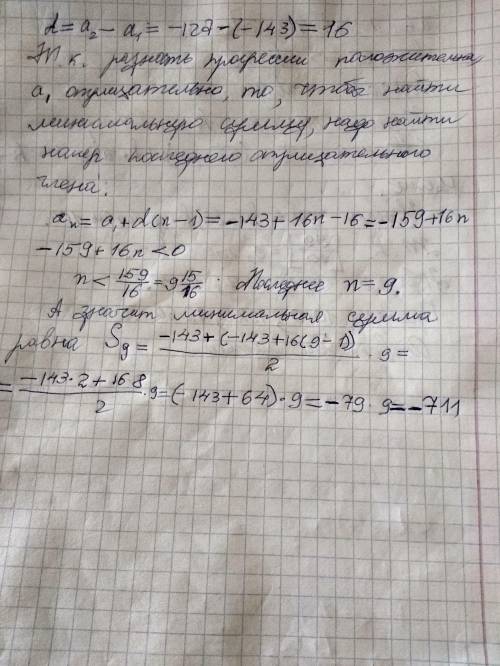 d = a₂ − a₁ = −127 − (−143) = 16
Т.к. разность прогрессии положительна,
a, отрицательно, то, чтобы найти
минимальную сумму, надо найти
номер последнего отрицательного
члена.
aₙ = a₁ + d(n−1) = −143 + 16n − 16 = −159 + 16n
−159 + 16n < 0
n < 159/16 = 9 15/16. Последнее n = 9.
А значит минимальная сумма
равна S₉ = (−143 + (−143 + 16(9−1)))/2 · 9 =
= (−143·2 + 16·8)/2 · 9 = (−143 + 64) · 9 = −79 · 9 = −711